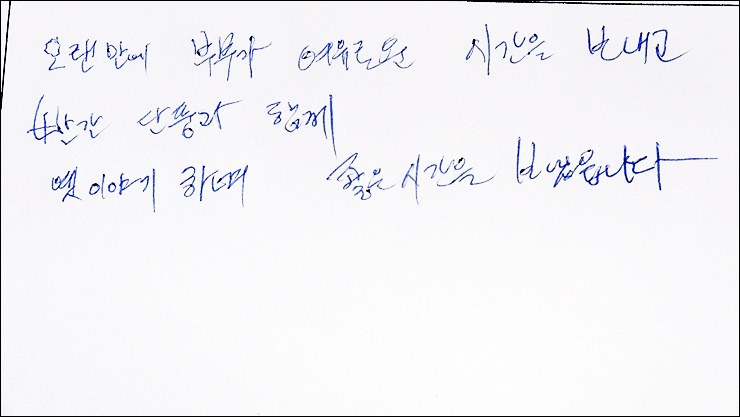 오랜만에 부부가 여유로운 시간을 보내고
빨간 단풍과 함께
옛이야기 하며 좋은시간을 보냈읍니다